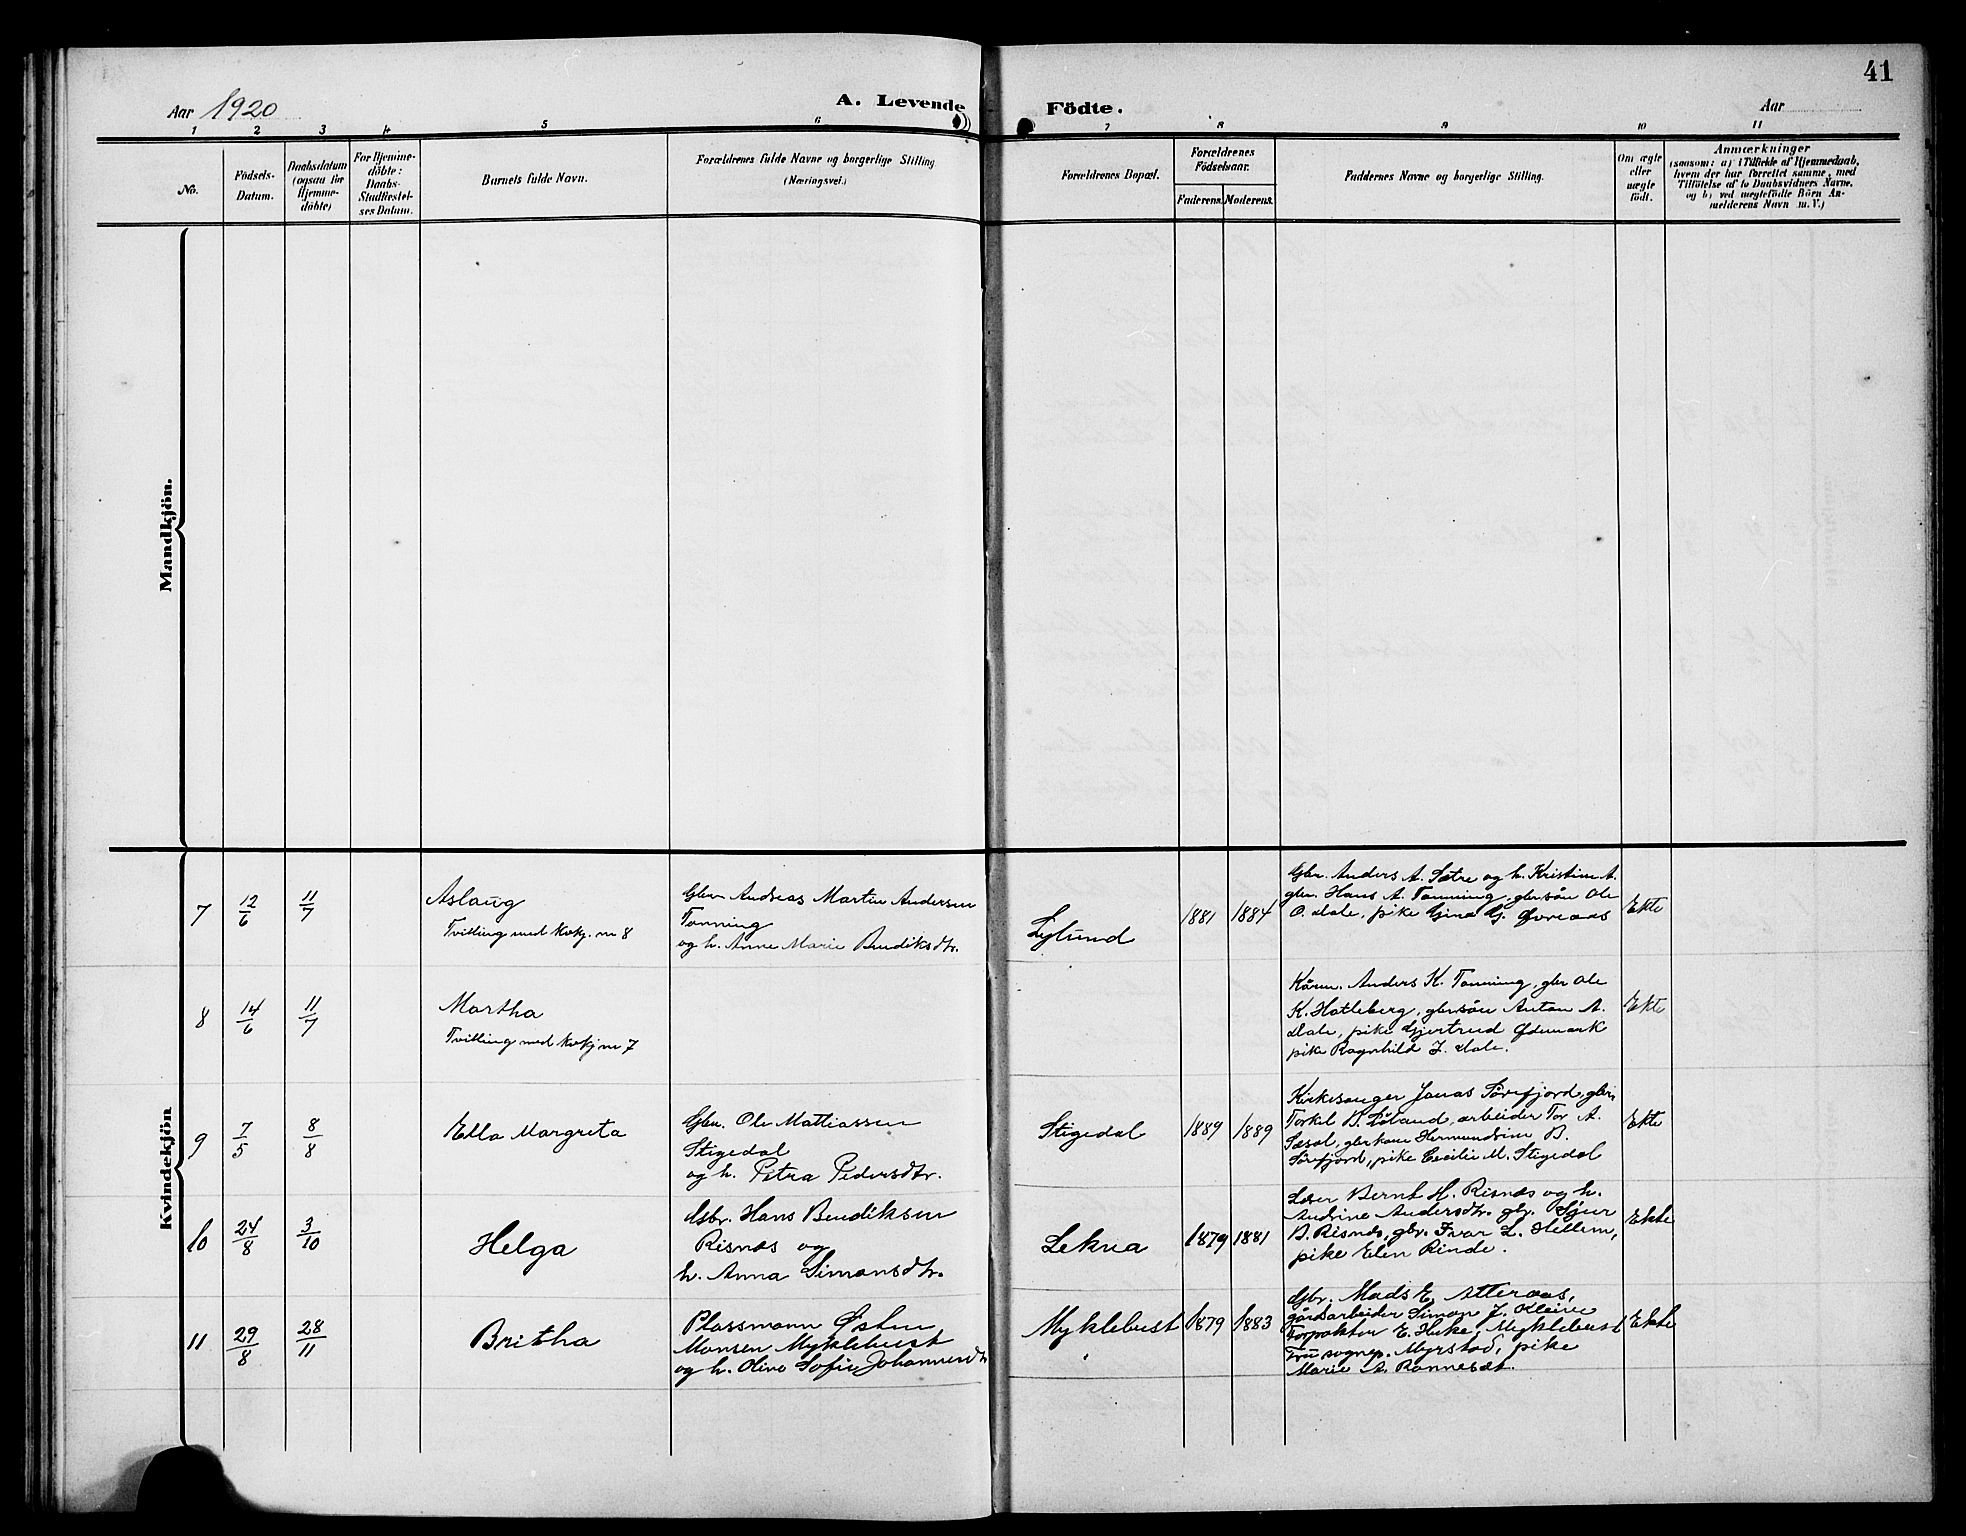 41
Aar 1920
A. Levende Födte.
Aar
1 2 3 4 5 6 7 8 9 10 11
No.
Födsels-
Datum.
Daabsdatum
(ogsaa for
Hjemme-
döbte)
For Hjemme-
döbte:
Daabs-
Stadfæstel-
ses Datum.
Barnets fulde Navn.
Forældrenes fulde Navne og borgerlige Stilling
(Næringsvei.)
Forældrenes Bopæl.
Forældrenes
Födselsaar.
Faderens. Moderens.
Faddernes Navne og borgerlige Stilling.
Om ægte
eller
uægte
födt.
Anmærkninger
(saasom: a) i Tilfælde af Hjemmedaab,
hvem der har forrettet samme, med
Tilföielse af to Daabsvidners Navne,
og b) ved uægtefödte Börn An-
melderens Navn m. V.)
Mandkjön.
Kvindekjön
7
12/6
11/7
Aslaug
Tvilling med kvkj. nr 8
Gbr. Andreas Martin Andersen
Tonning
og h. Anne Marie Bendiksdtr.
1881
1884
Gbr. Anders A. Sætre og h. Kristine A.
gbr. Hans A. Tonning, gbrsön Ole
O. Dale, pike Gina G. Øvreaas
Ekte
8
14/6
11/7
Martha
Tvilling med kvkj nr 7
Kårm. Anders K. Tonning, gbr Ole
K. Hatleberg, gbrsön Anton A.
Dale, pike Gjertrud Ødemark
pike Ragnhild J. Dale.
Ekte
9
7/5
8/8
Ella Margreta
Gbr. Ole Mattiassen
Stigedal
og h. Petra Pedersdtr.
Stigedal
1889
1889
Kirkesanger Jonas Sörefjord, gbr.
Torkel B. Löland, arbeider Tor A.
gbrkone Hermundrine B.
Sörefjord, pike Cecilie M. Stigedal
Ekte
10
24/8
3/10
Helga
Gbr. Hans Bendiksen
Risnes og
h. Anna Simonsdtr.
Lekna
1879
1881
Lærer Bernt H. Risnes og h.
Andrine Andersdtr. gbr. Sjur
B. Risnes, gbr. Ivar L. Hellem,
pike Elen Rinde.
Ekte
11
29/8
28/11
Britha
Plassmann Østen
Monsen Myklebust
og h. Oline Sofie Johannesdtr
Myklebust
1879
1883
Gbr. Mads E. Atteraas,
gårdsarbeider Simon J. Kleive
Forpakter E. Huke, Myklebust
Fru sognep. Myrstad, pike
Marie A. Rønneset.
Ekte